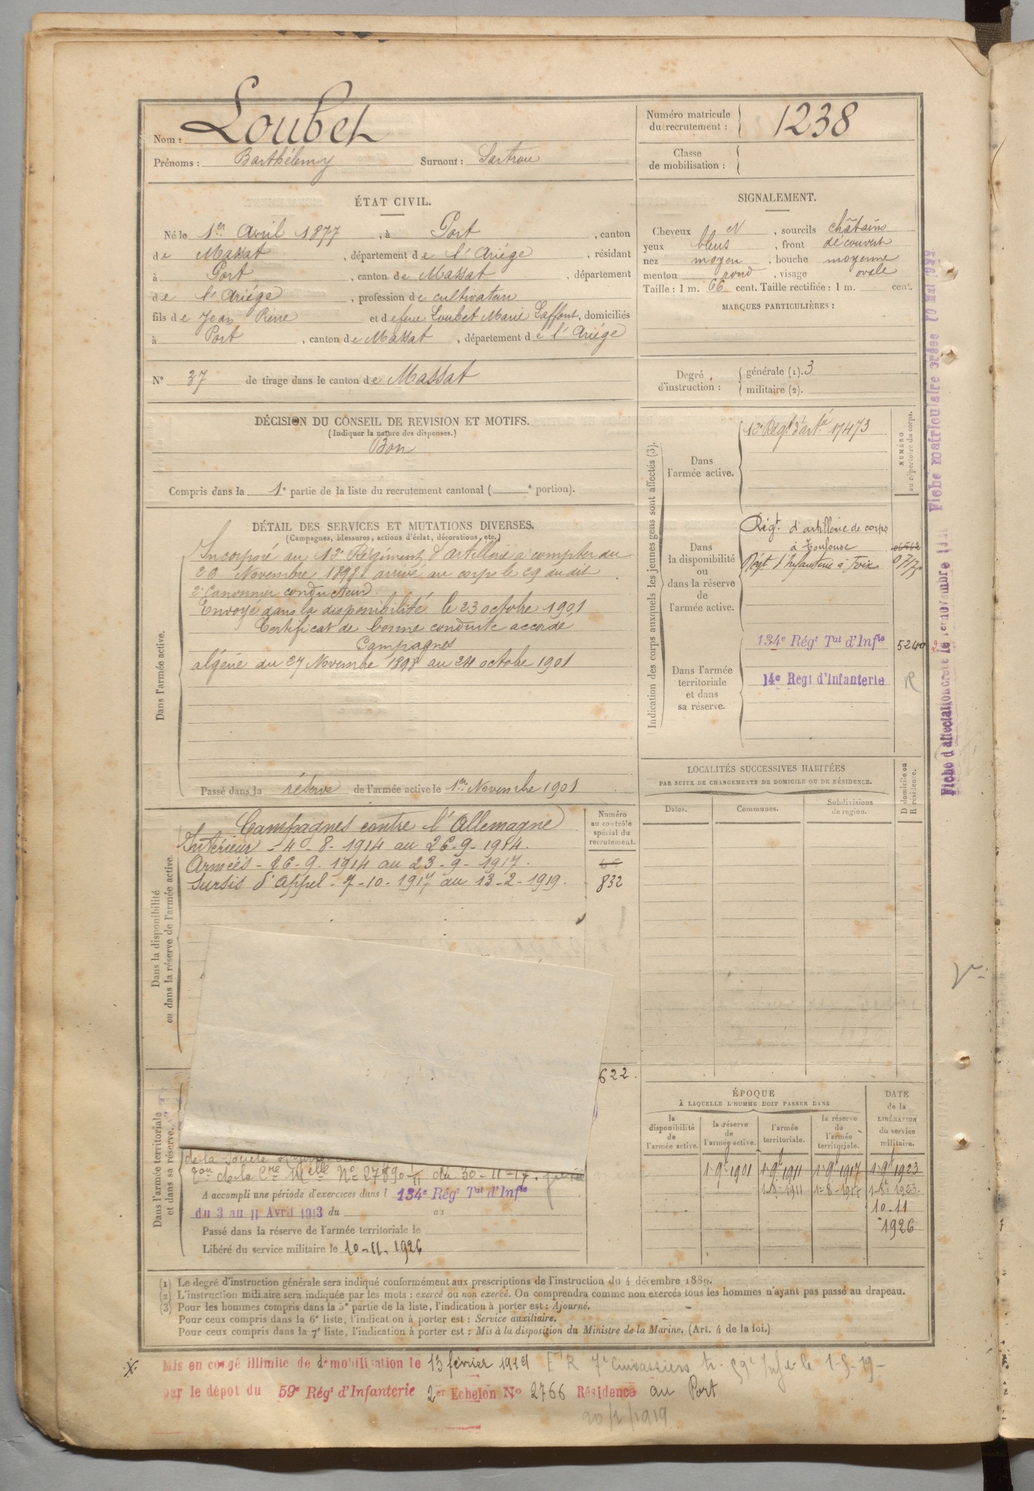 Nom : Loubet
Prénoms : Barthélemy Surnom : Sartrou
Numéro matricule du recrutement : 1238
Classe de mobilisation :
ÉTAT CIVIL.
Né le 1er Avril 1877, à Port, canton
de Massat, département de l'Ariége, résidant
à Port, canton de Massat, département
de l'Ariége, profession de cultivateur
fils de Jean Pierre et de feue Loubet Marie Laffont, domiciliés
à Port, canton de Massat, département de l'Ariége
N° 37 de tirage dans le canton de Massat
SIGNALEMENT.
Cheveux N, sourcils châtains
yeux bleus, front découvert
nez moyen, bouche moyenne
menton rond, visage ovale
Taille : 1 m. 66 cent. Taille rectifiée : 1 m. cent.
MARQUES PARTICULIÈRES :
Degré d'instruction : générale (1). 3
militaire (2).
DÉCISION DU CONSEIL DE REVISION ET MOTIFS.
(Indiquer la nature des dispenses.)
Bon
Compris dans la 1e partie de la liste du recrutement cantonal ( e portion).
DÉTAIL DES SERVICES ET MUTATIONS DIVERSES.
(Campagnes, blessures, actions d'éclat, décorations, etc.)
Dans l'armée active.
Incorporé au 13e Régiment d'artillerie à compter du
20 Novembre 1898 arrivé au corps le 29 du dit
2e canonnier conducteur
Envoyé dans la disponibilité le 23 octobre 1901
Certificat de bonne conduite accordé
Campagnes
algérie du 27 Novembre 1898 au 24 octobre 1901
Passé dans la réserve de l'armée active le 1er Novembre 1901
Indication des corps auxquels les jeunes gens sont affectés (3).
NUMÉRO au répertoire du corps.
Dans l'armée active.
13e Régt d'arte 17473
Dans la disponibilité ou dans la réserve de l'armée active.
Régt d'artillerie de corps
à Toulouse
Régt d'Infanterie à Foix
Dans l'armée territoriale et dans sa réserve.
134e Régt Tal d'Infie 5240
14e Regt d'Infanterie R
Dans la disponibilité ou dans la réserve de l'armée active.
Campagnes contre l'Allemagne
Intérieur - 4-8-1914 au 26-9-1914.
Armées - 26-9-1914 au 23-9-1917.
Sursis d'appel - 7-10-1917 au 13-2-1919.
Numéro au contrôle spécial du recrutement.
832
622
LOCALITÉS SUCCESSIVES HABITÉES
PAR SUITE DE CHANGEMENTS DE DOMICILE OU DE RÉSIDENCE.
Dates. Communes. Subdivisions de région. D domicile ou R résidence.
ÉPOQUE
À LAQUELLE L'HOMME DOIT PASSER DANS
la disponibilité de l'armée active. la réserve de l'armée active. l'armée territoriale. la réserve de l'armée territoriale. DATE de la LIBÉRATION du service militaire.
1-9e 1901 1-9e 1911 1-9e 1917 1-9e 1923
1-8-1911 1-8-1917 1-8-1923
10-11
1926
Dans l'armée territoriale et dans sa réserve.
de la Société
de la Cre Melle N° 27890-R du 30-11-17
A accompli une période d'exercices dans l 134e Régt Tal d'Infie
du 3 au 11 Avril 1913 du au
Passé dans la réserve de l'armée territoriale le
Libéré du service militaire le 10-11-1926
(1) Le degré d'instruction générale sera indiqué conformément aux prescriptions de l'instruction du 4 décembre 1889.
(2) L'instruction militaire sera indiquée par les mots : exercé ou non exercé. On comprendra comme non exercés tous les hommes n'ayant pas passé au drapeau.
(3) Pour les hommes compris dans la 5e partie de la liste, l'indication à porter est : Ajourné.
Pour ceux compris dans la 6e liste, l'indication à porter est : Service auxiliaire.
Pour ceux compris dans la 7e liste, l'indication à porter est : Mis à la disposition du Ministre de la Marine. (Art. 4 de la loi.)
Mis en congé illimité de démobilisation le 13 février 1919 Et R 7e Cuirassiers tr. 59e Inf le 1-5-19-
par le dépot du 59e Régt d'Infanterie 2e Echelon N° 2766 Résidence au Port
20/2/1919